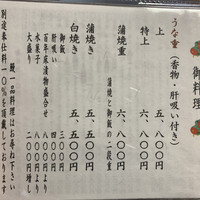 御料理
うな重(香物・肝吸い付き)
上 五、八〇〇円
特上 六、八〇〇円
蒲焼重 六、八〇〇円
蒲焼と御飯の二段重
蒲焼き 五、五〇〇円
白焼き 五、五〇〇円
御飯 三〇〇円
肝吸い 二〇〇円
百年床漬物盛合せ 八〇〇円より
水菓子 八〇〇円より
大盛り 二〇〇円増し
鰻一品料理はお尋ね下さい
別途奉仕料一〇%を頂戴しております